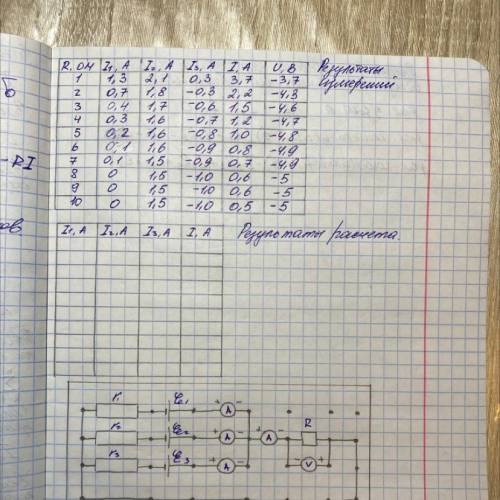 R, ОМ I₁, А I₂, А I₃, А I, А U, В Результаты
1 1,3 2,1 0,3 3,7 -3,7 измерений
2 0,7 1,8 -0,3 2,2 -4,3
3 0,4 1,7 -0,6 1,5 -4,6
4 0,3 1,6 -0,7 1,2 -4,7
5 0,2 1,6 -0,8 1,0 -4,8
6 0,1 1,6 -0,9 0,8 -4,9
- RI 7 0,1 1,5 -0,9 0,7 -4,9
8 0 1,5 -1,0 0,6 -5
9 0 1,5 -1,0 0,6 -5
10 0 1,5 -1,0 0,5 -5
ов I₁, А I₂, А I₃, А I, А Результаты расчета.
r₁ ℰ₁ + A -
r₂ ℰ₂ + A - + A - R
r₃ ℰ₃ + A - + V -